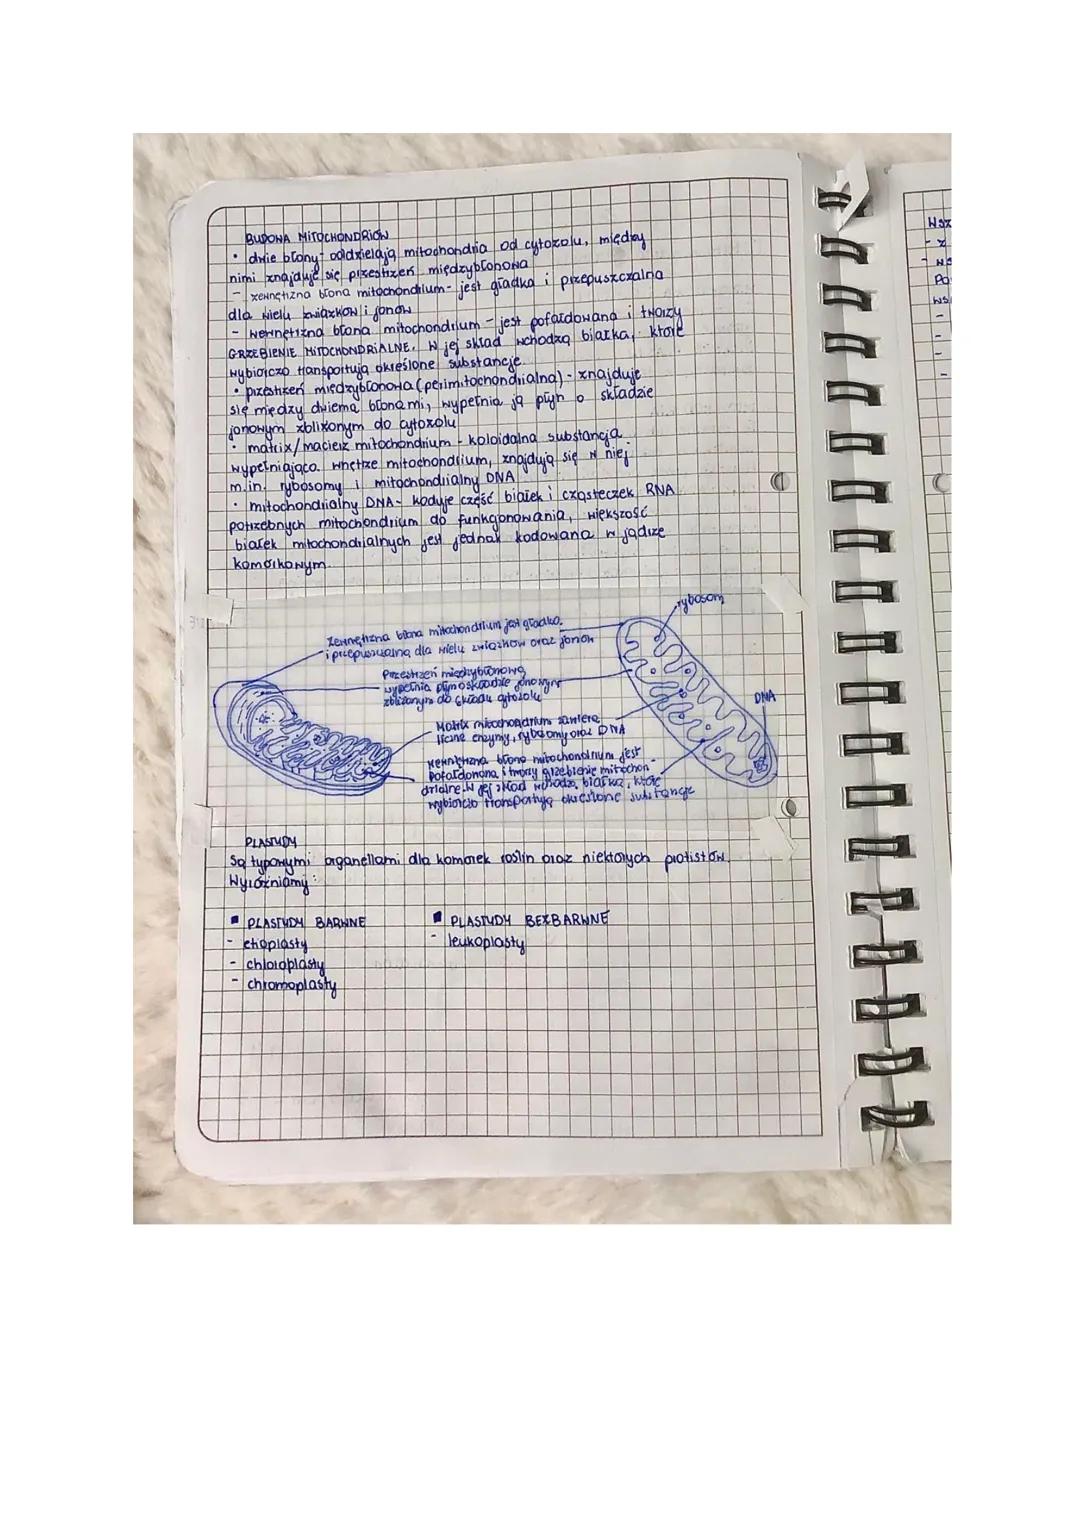 BUDOWA MITOCHONDRIÓW
• dwie błony- oddzielają mitochondria od cytozolu, między
nimi znajduje się przestrzeń międzybłonowa
- zewnętrzna błona mitochondrium- jest gładka i przepuszczalna
dla wielu związków i jonów
- wewnętrzna błona mitochondrium - jest pofałdowana i tworzy
GRZEBIENIE MITOCHONDRIALNE. W jej skład wchodzą białka, które
wybiórczo transportują określone substancje
• przestrzeń międzybłonowa (perimitochondrialna) - znajduje
się między dwiema błonami, wypełnia ją płyn o składzie
jonowym zbliżonym do cytozolu
• matrix/macierz mitochondrium - koloidalna substancja
wypełniająca wnętrze mitochondrium, znajdują się w niej
m.in. rybosomy i mitochondrialny DNA
• mitochondrialny DNA- koduje część białek i cząsteczek RNA
potrzebnych mitochondrium do funkcjonowania, większość
białek mitochondrialnych jest jednak kodowana w jądrze
komórkowym.
rybosom
Zewnętrzna błona mitochondrium jest gładka
i przepuszczalna dla wielu związków oraz jonów
Przestrzeń międzybłonową
wypełnia płyn o składzie jonowym
zbliżonym do składu cytozolu
DNA
Matrix mitochondrium zawiera
liczne enzymy, rybosomy oraz DNA
Wewnętrzna błona mitochondrium jest
pofałdowana i tworzy grzebienie mitochon-
drialne. W jej skład wchodzą białka, które
wybiórczo transportują określone substancje
PLASTYDY
Są typowymi organellami dla komórek roślin oraz niektórych protistów.
Wyróżniamy:
▪ PLASTYDY BARWNE
- etioplasty
- chloroplasty
- chromoplasty
▪ PLASTYDY BEZBARWNE
- leukoplasty